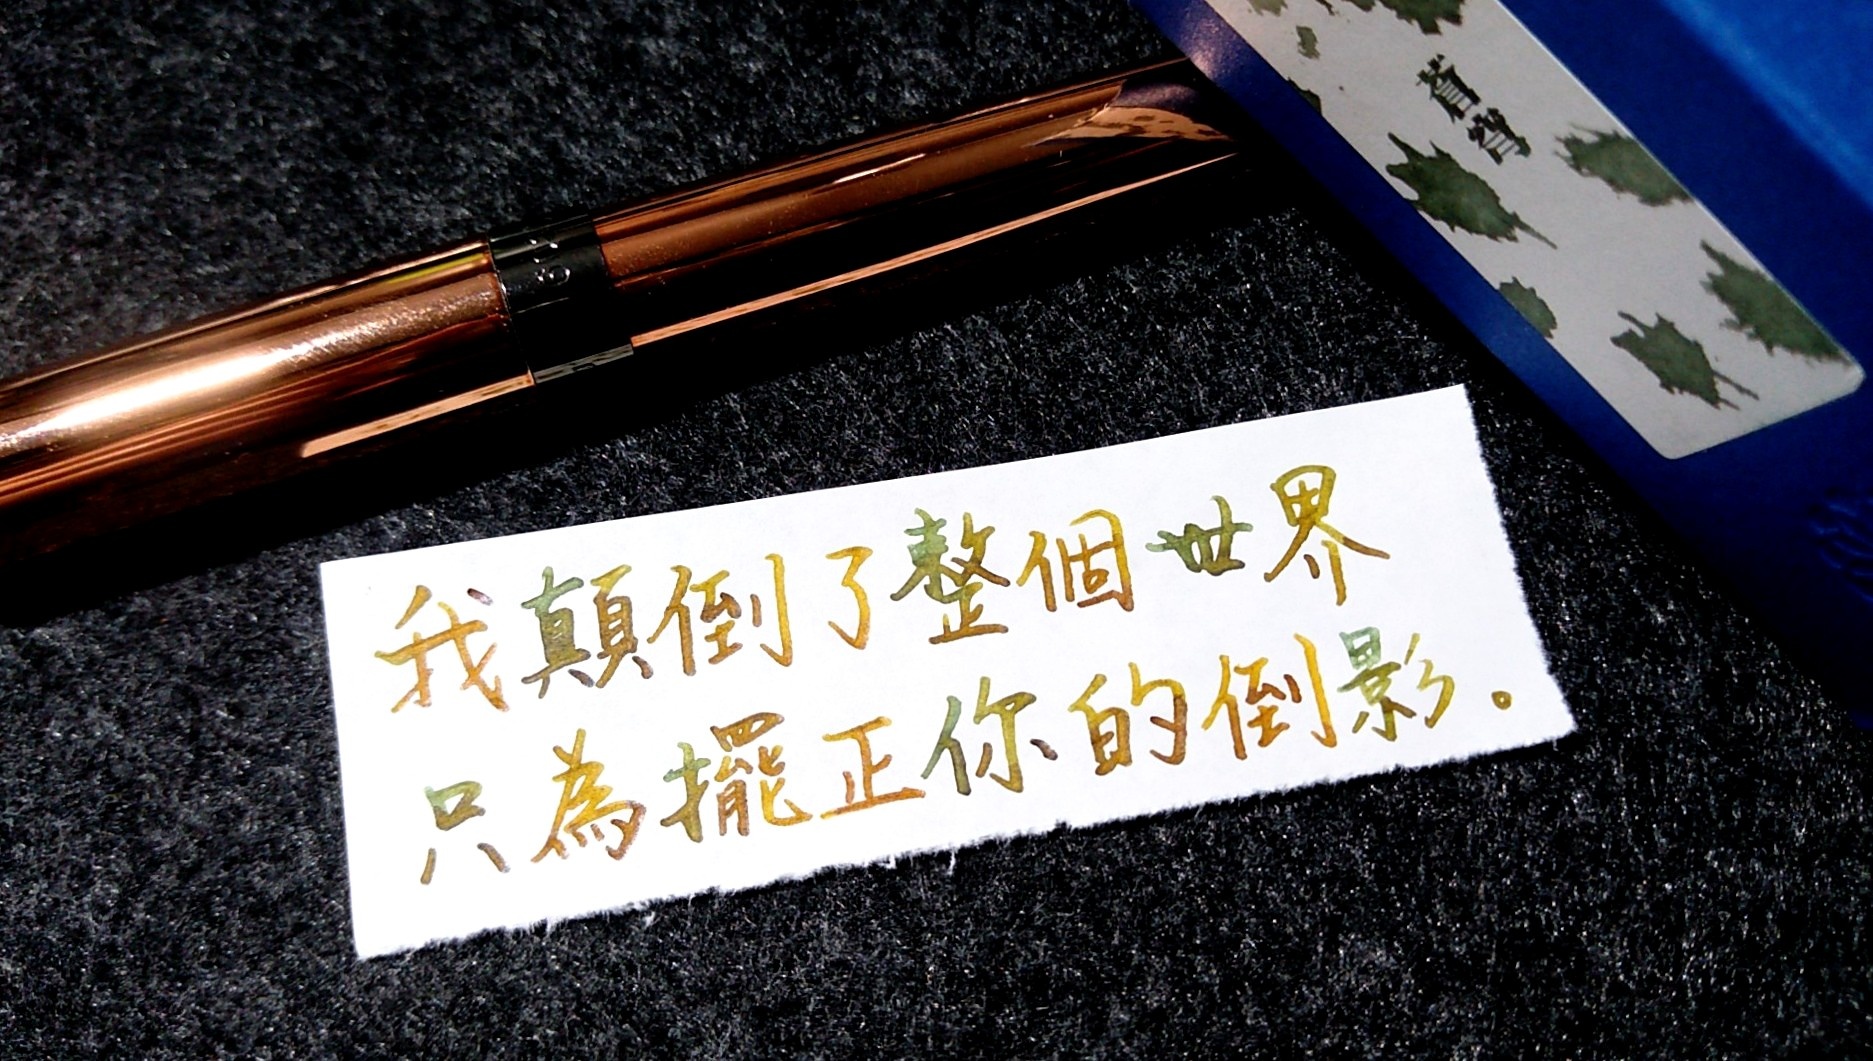 蒼穹
我顛倒了整個世界
只為擺正你的倒影。